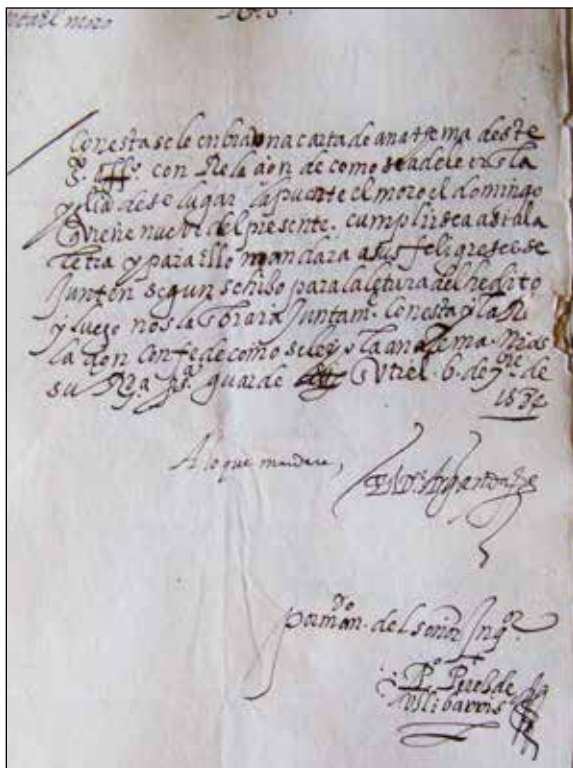 el moro
Con esta se le enbia una carta de anathema deste
S. offi.º con Relaçion de como se a de leer en la
yglia dese lugar la puente el moro el domingo
que viene nueve del presente. cumplirsea asta la
letra y para ello mandara a sus feligreses se
junten segun se hiso para la letura del hedito
y luego nos la tornara juntam. con esta y la Re
laçion con fe de como se leyo la anatema. Nros
su Rª. pª. guarde Curiel. 6. de 7bre. de
A lo que mandare,
por mdº. del señor Inqºr.
Pº. Perez de
Ullibarris